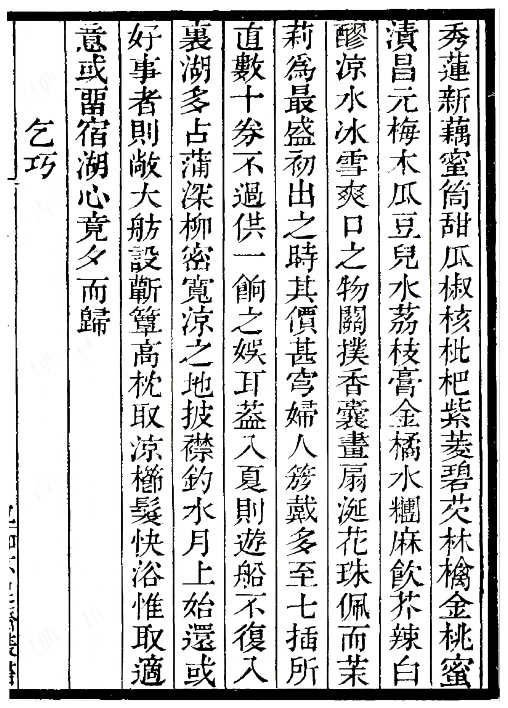 秀蓮新藕蜜筒甜瓜椒核枇杷紫菱碧芡林檎金桃蜜
漬昌元梅木瓜豆兒水荔枝膏金橘水糰麻飲芥辣白
醪凉水冰雪爽口之物關撲香囊畫扇涎花珠佩而茉
莉為最盛初出之時其價甚穹婦人簇戴多至七插所
直數十券不過供一餉之娛耳葢入夏則遊船不復入
裏湖多占蒲深柳密寬凉之地披襟釣水月上始還或
好事者則敞大舫設蘄簟高枕取凉櫛髮快浴惟取適
意或畱宿湖心竟夕而歸
乞巧